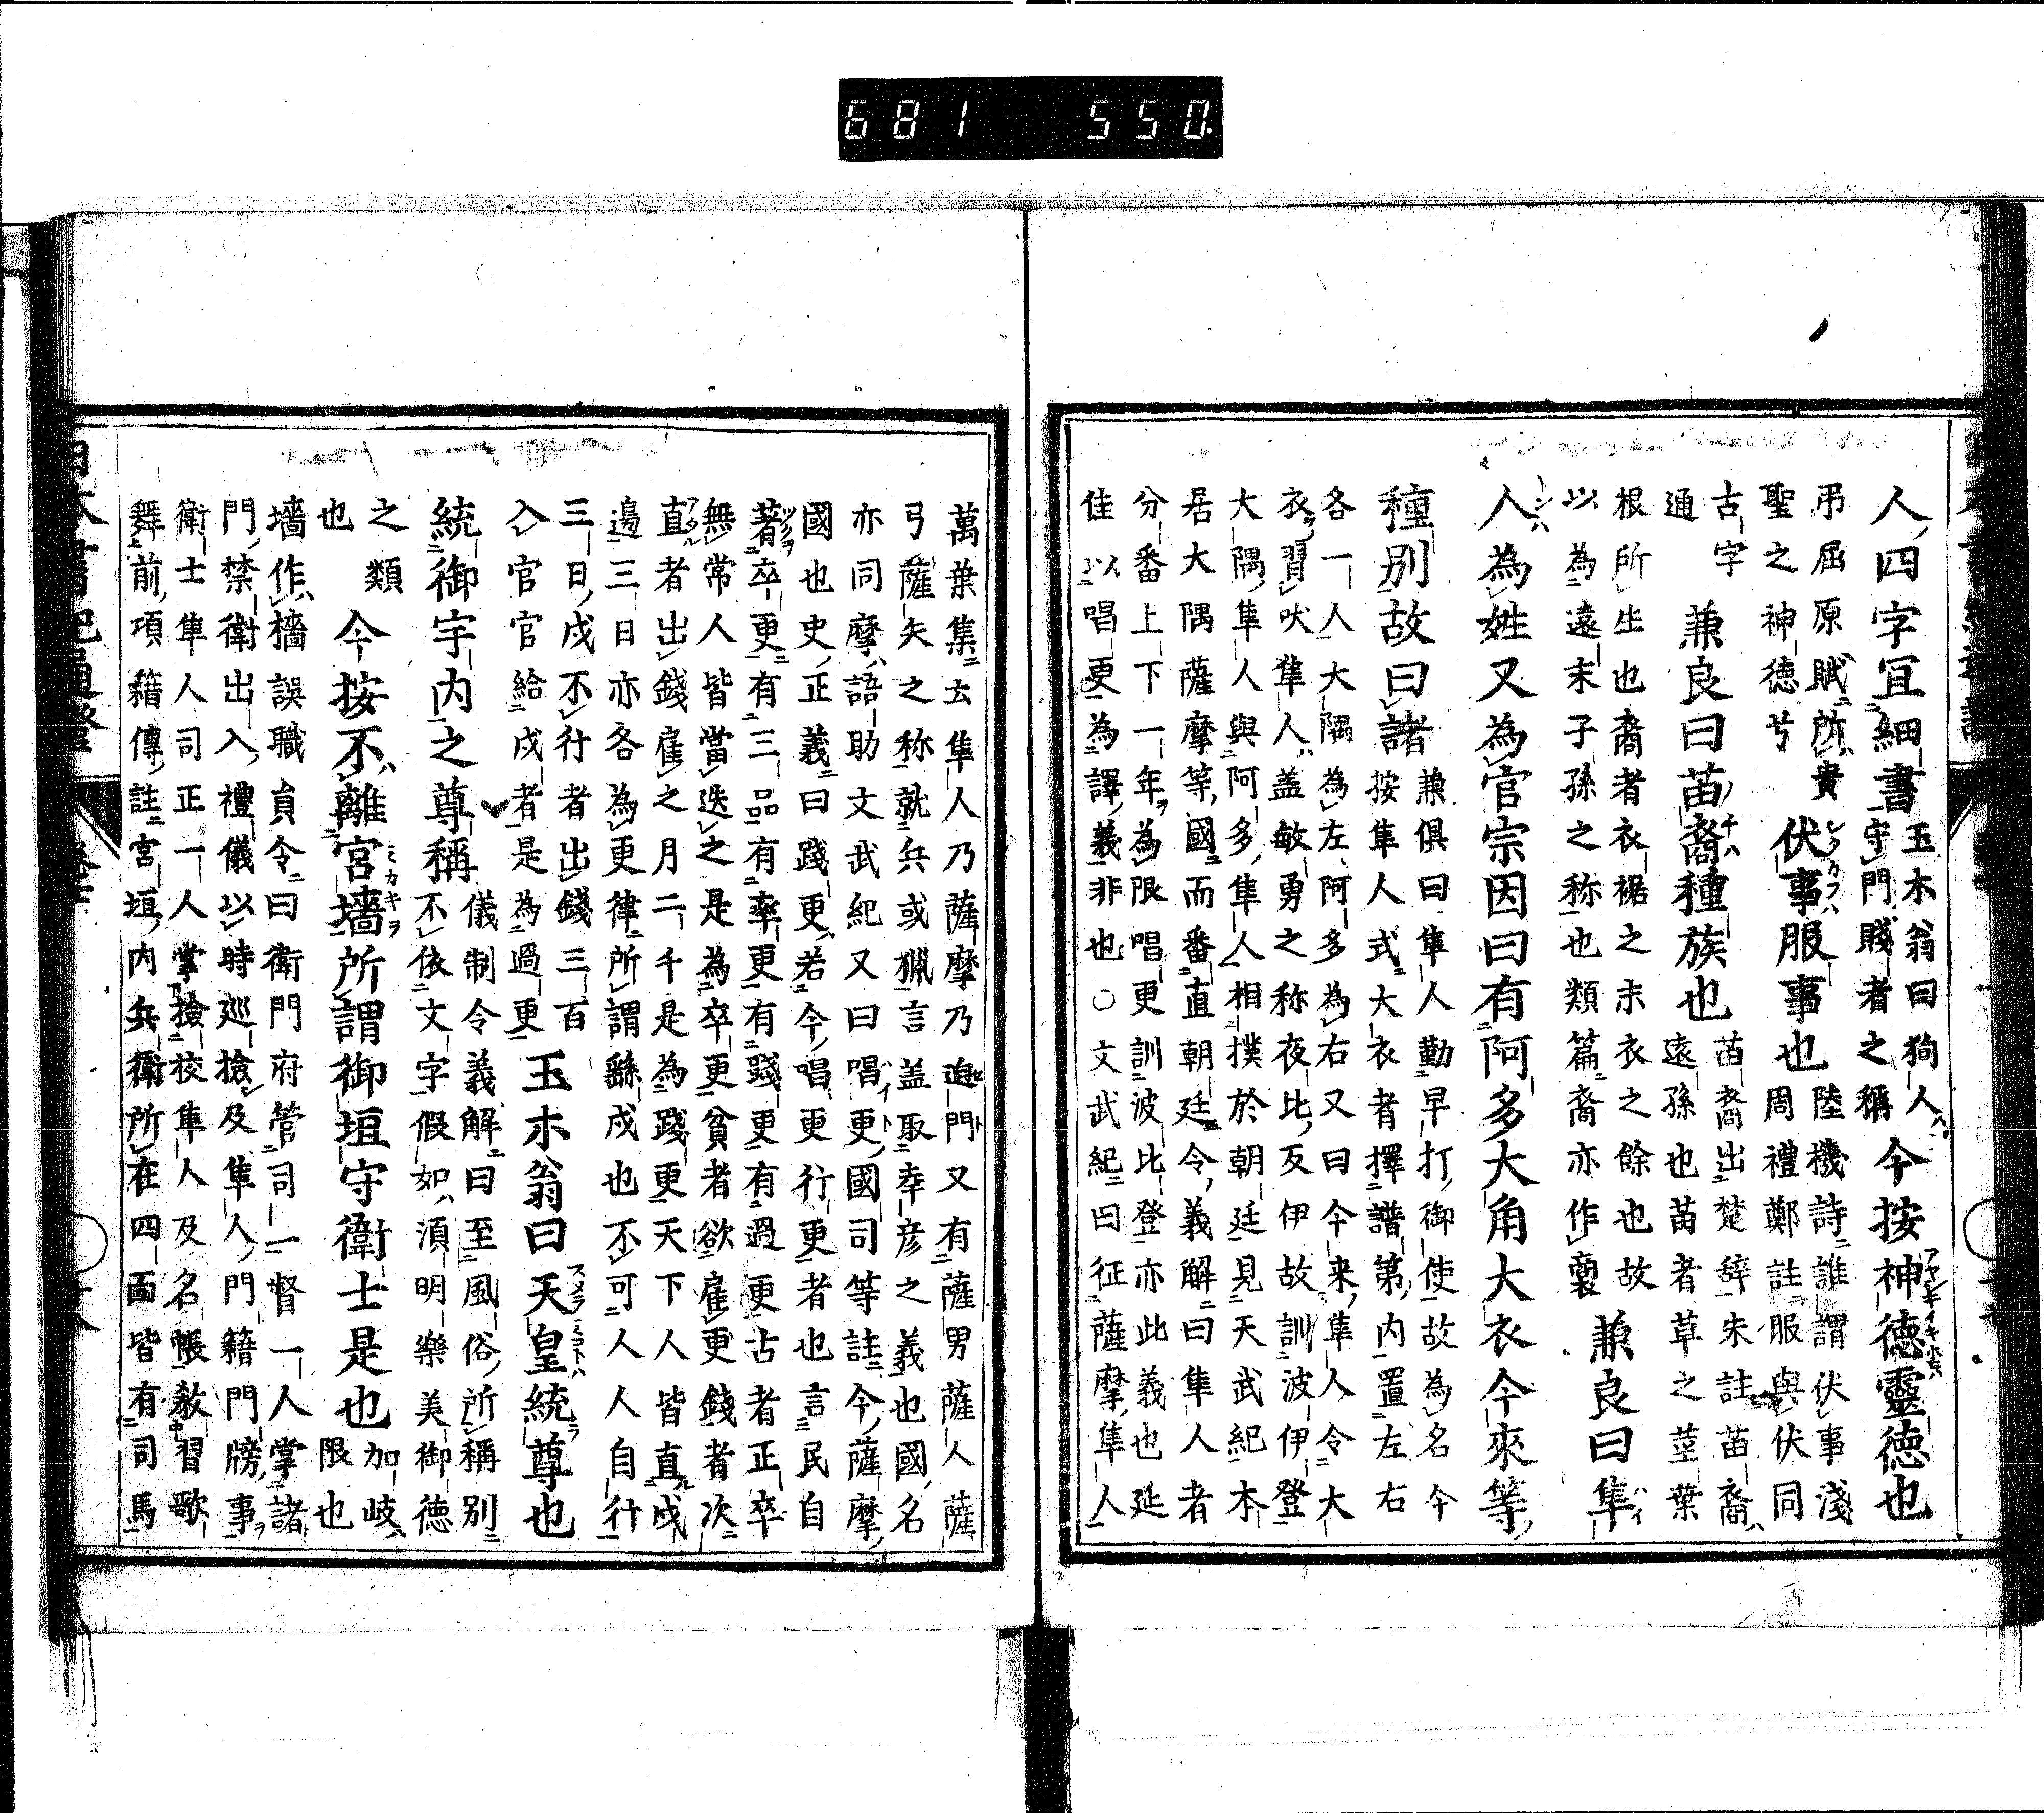 人四字宜細書
玉木翁曰狗人
守門賤者之稱
今按神德靈德也
弔屈原賦所貴
聖之神德兮
伏事服事也
陸機詩誰謂伏事淺
周禮鄭註服與伏同
古字
通
兼良曰苗裔種族也
苗裔出楚辭朱註苗裔
遠孫也苗者草之莖葉
根所生也裔者衣裾之末衣之餘也故
以為遠末子孫之称也類篇裔亦作
兼良曰隼
人為姓又為官宗因曰有阿多大角大衣今來等
種別故曰諸
兼俱曰隼人勤早打御使故為名今
按隼人式大衣者擇譜第内置左右
各一人大隅為左阿多為右又曰今来隼人令大
衣習吠隼人盖敏勇之称夜比反伊故訓波伊登
大隅隼人與阿多隼人相撲於朝廷見天武紀本
居大隅薩摩等國而番直朝廷令義解曰隼人者
分番上下一年為限唱更訓波比登亦此義也延
佳以唱更為譯義非也○文武紀曰征薩摩隼人
萬葉集云隼人乃薩摩乃迫門又有薩男薩人薩
弓薩矢之称就兵或猟言盖取幸彦之義也國名
亦同摩語助文武紀又曰唱更國司等註今薩摩
國也史正義曰踐更若今唱更行更者也言民自
著卒更有三品有卒更有踐更有過更古者正卒
無常人皆當迭之是為卒更貧者欲雇更錢者次
直者出錢雇之月二千是為踐更天下人皆直戍
邊三日亦各為更律所謂繇戍也不可人人自行
三日戍不行者出錢三百
入官官給戍者是為過更
玉木翁曰天皇統尊也
統御宇内之尊稱
儀制令義解曰至風俗所稱別
不依文字假如須明樂美御德
之類
也
今按不離宮墻所謂御垣守衛士是也
加岐
限也
墻作檣誤職員令曰衛門府管司一督一人掌諸
門禁衛出入禮儀以時巡撿及隼人門籍門牓事
衛士隼人司正一人掌撿校隼人及名帳教習歌
舞前項籍傳註宮垣内兵衛所在四面皆有司馬